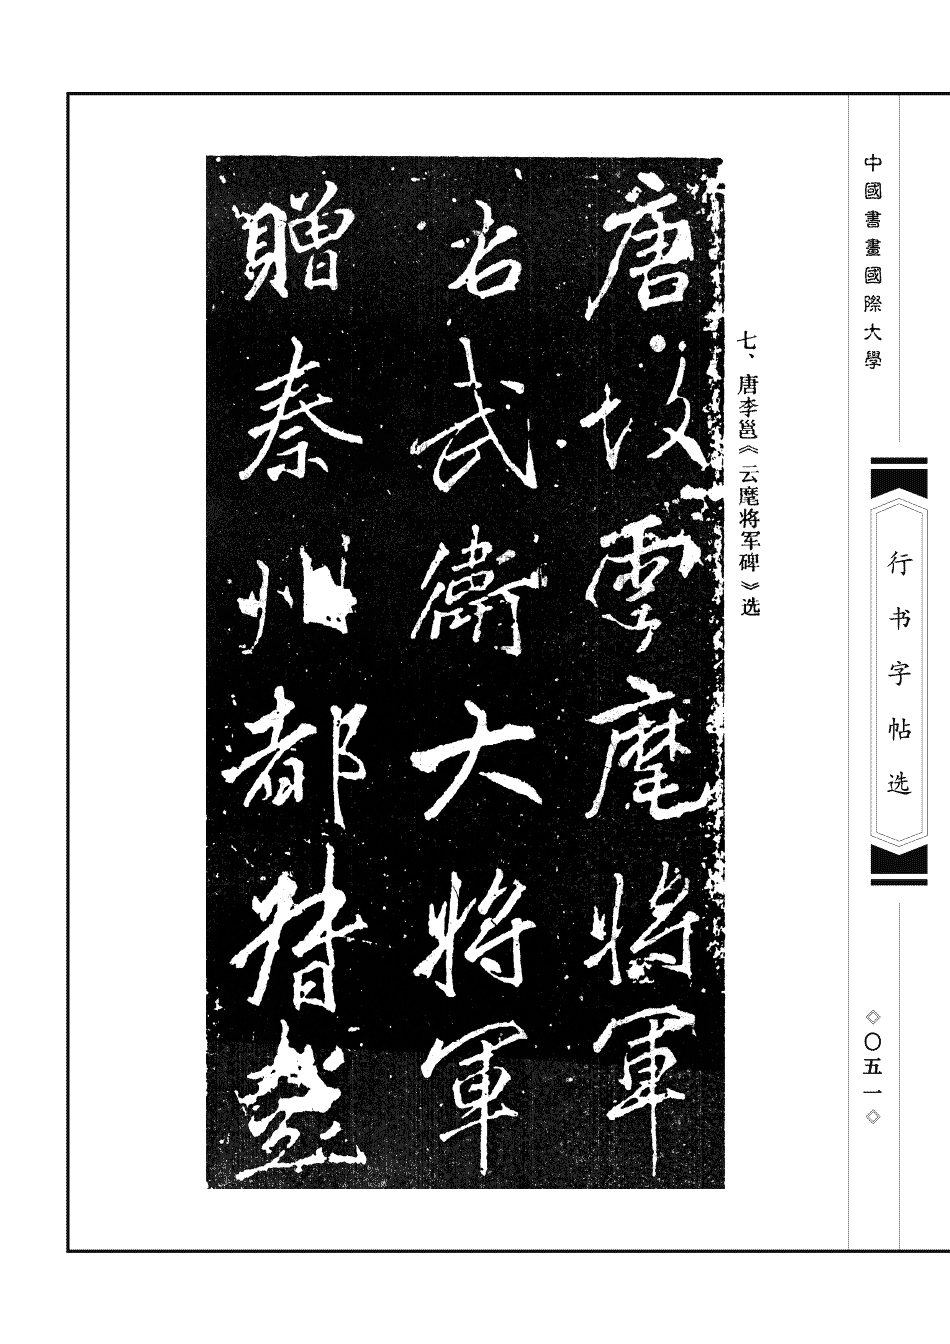 中國書畫國際大學
行书字帖选
◇〇五一◇
七、唐李邕《云麾将军碑》选
唐故雲麾將軍
右武衛大將軍
贈秦州都督彭